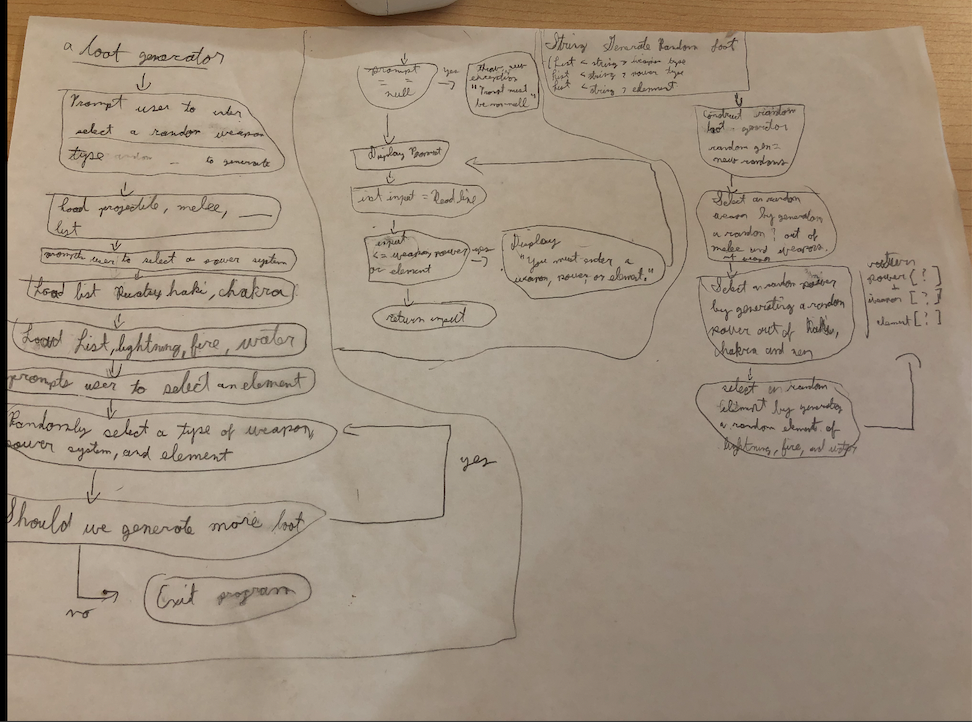 a loot generator
Prompt user to
select a random weapon
type to generate
Load projectile, melee,
list
prompts user to select a power system
Load list haki, chakra
Load List, lightning, fire, water
prompts user to select an element
Randomly select a type of weapon,
power system, and element
Should we generate more loot
yes
no
Exit program
prompt
= =
null
yes
throw new
exception
"Prompt must
be non-null"
Display Prompt
int input = Readline
input
<= weapon, power,
or element
yes
Display
"You must enter a
weapon, power, or element."
return input
String Generate Random loot
(List < string > weapon type
List < string > power type
List < string > element
Construct random
loot generator
random gen =
new random
Select an random
weapon by generation
a random ? out of
melee and weapons.
Select an random power
by generating a random
power out of haki,
chakra and
select an random
element by generating
a random element of
lightning, fire, and water
return
power [ ? ]
+
weapon [ ? ]
element [ ? ]